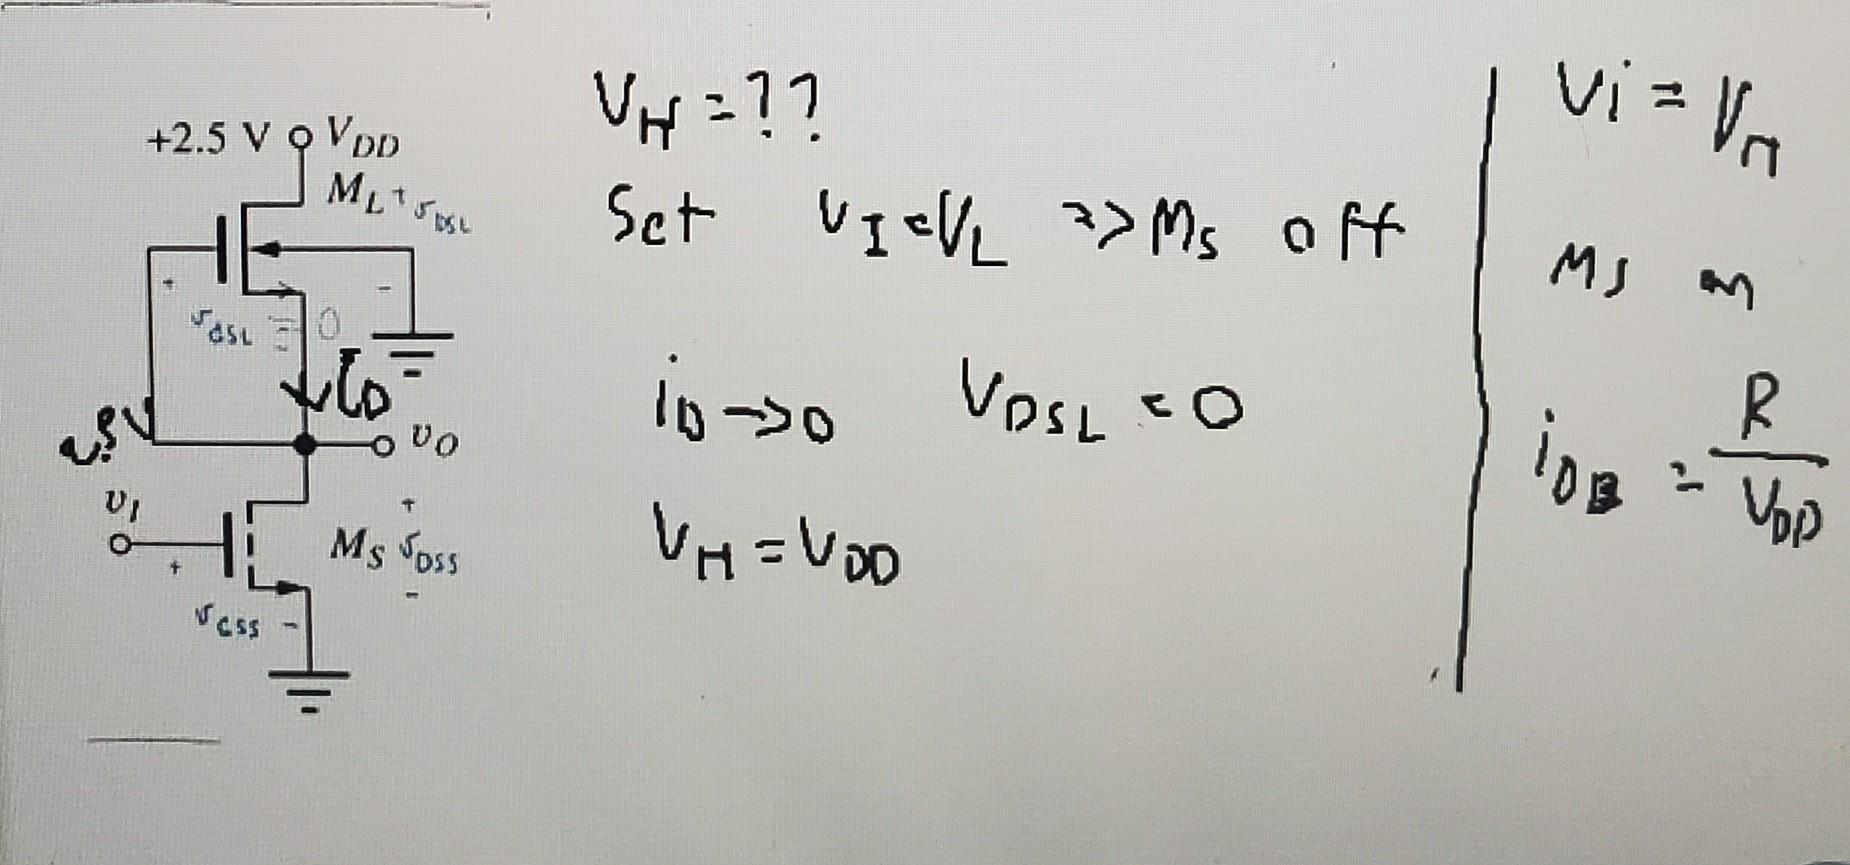 +2.5 V V_DD
M_L + v_DSL
+ -
v_GSL = 0
i_D
v_O
v_I
+
M_S v_DSS
+ -
v_GSS -
V_H = ??
Set v_I = V_L => M_S off
i_D -> 0 V_DSL = 0
V_H = V_DD
Vi = V_H
MS on
i_DB = R / V_DD